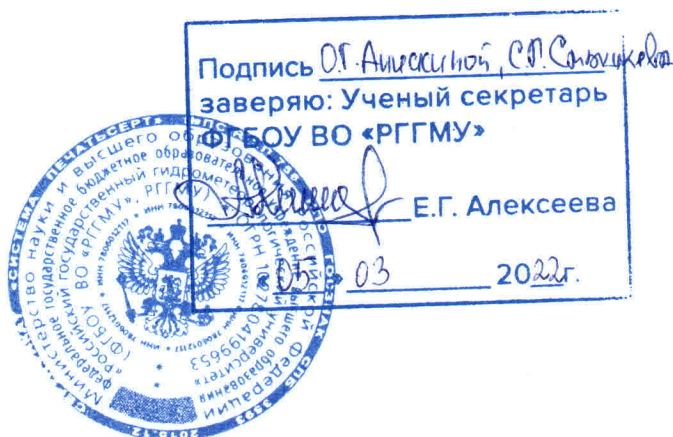 Подпись О.Г. Анискиной, С.П.
заверяю: Ученый секретарь
ФГБОУ ВО «РГГМУ»
Е.Г. Алексеева
«05» 03 2022г.
Министерство науки и высшего образования Российской Федерации
федеральное государственное бюджетное образовательное учреждение высшего образования
«Российский государственный гидрометеорологический университет»
(ФГБОУ ВО «РГГМУ», РГГМУ)
ИНН 7806012117